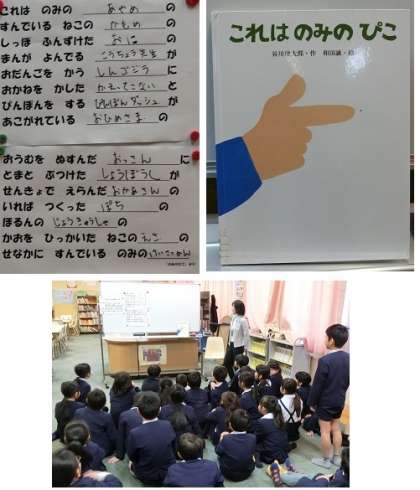 これは のみの あやめ の
すんでいる ねこの かもめ の
しっぽ ふんずけた おに の
まんが よんでる こうちょう先生 が
おだんごを かう シンゴジラ に
おかねを かした かえってこない と
ぴんぽんを する ぴんぽんダッシュ が
あこがれている おひめさま の
おうむを ぬすんだ おっさん に
とまと ぶつけた しょうぼうし が
せんきょで えらんだ おかあさん の
いれば つくった ぽち の
ほるんの じょうきゅうしゃ の
かおを ひっかいた ねこの えさ の
せなかに すんでいる のみの
これは のみの ぴこ
谷川俊太郎・作 和田誠・絵